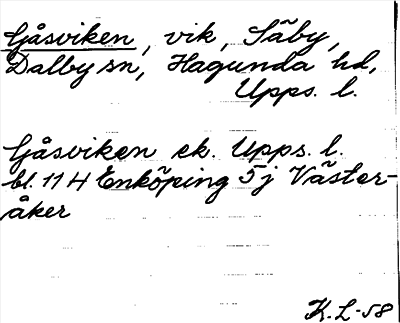 Gåsviken, vik, Säby,
Dalby sn, Hagunda hd,
Upps. l.
Gåsviken ek. Upps. l.
bl. 11 H Enköping 5j Väster-
åker
K.L-58